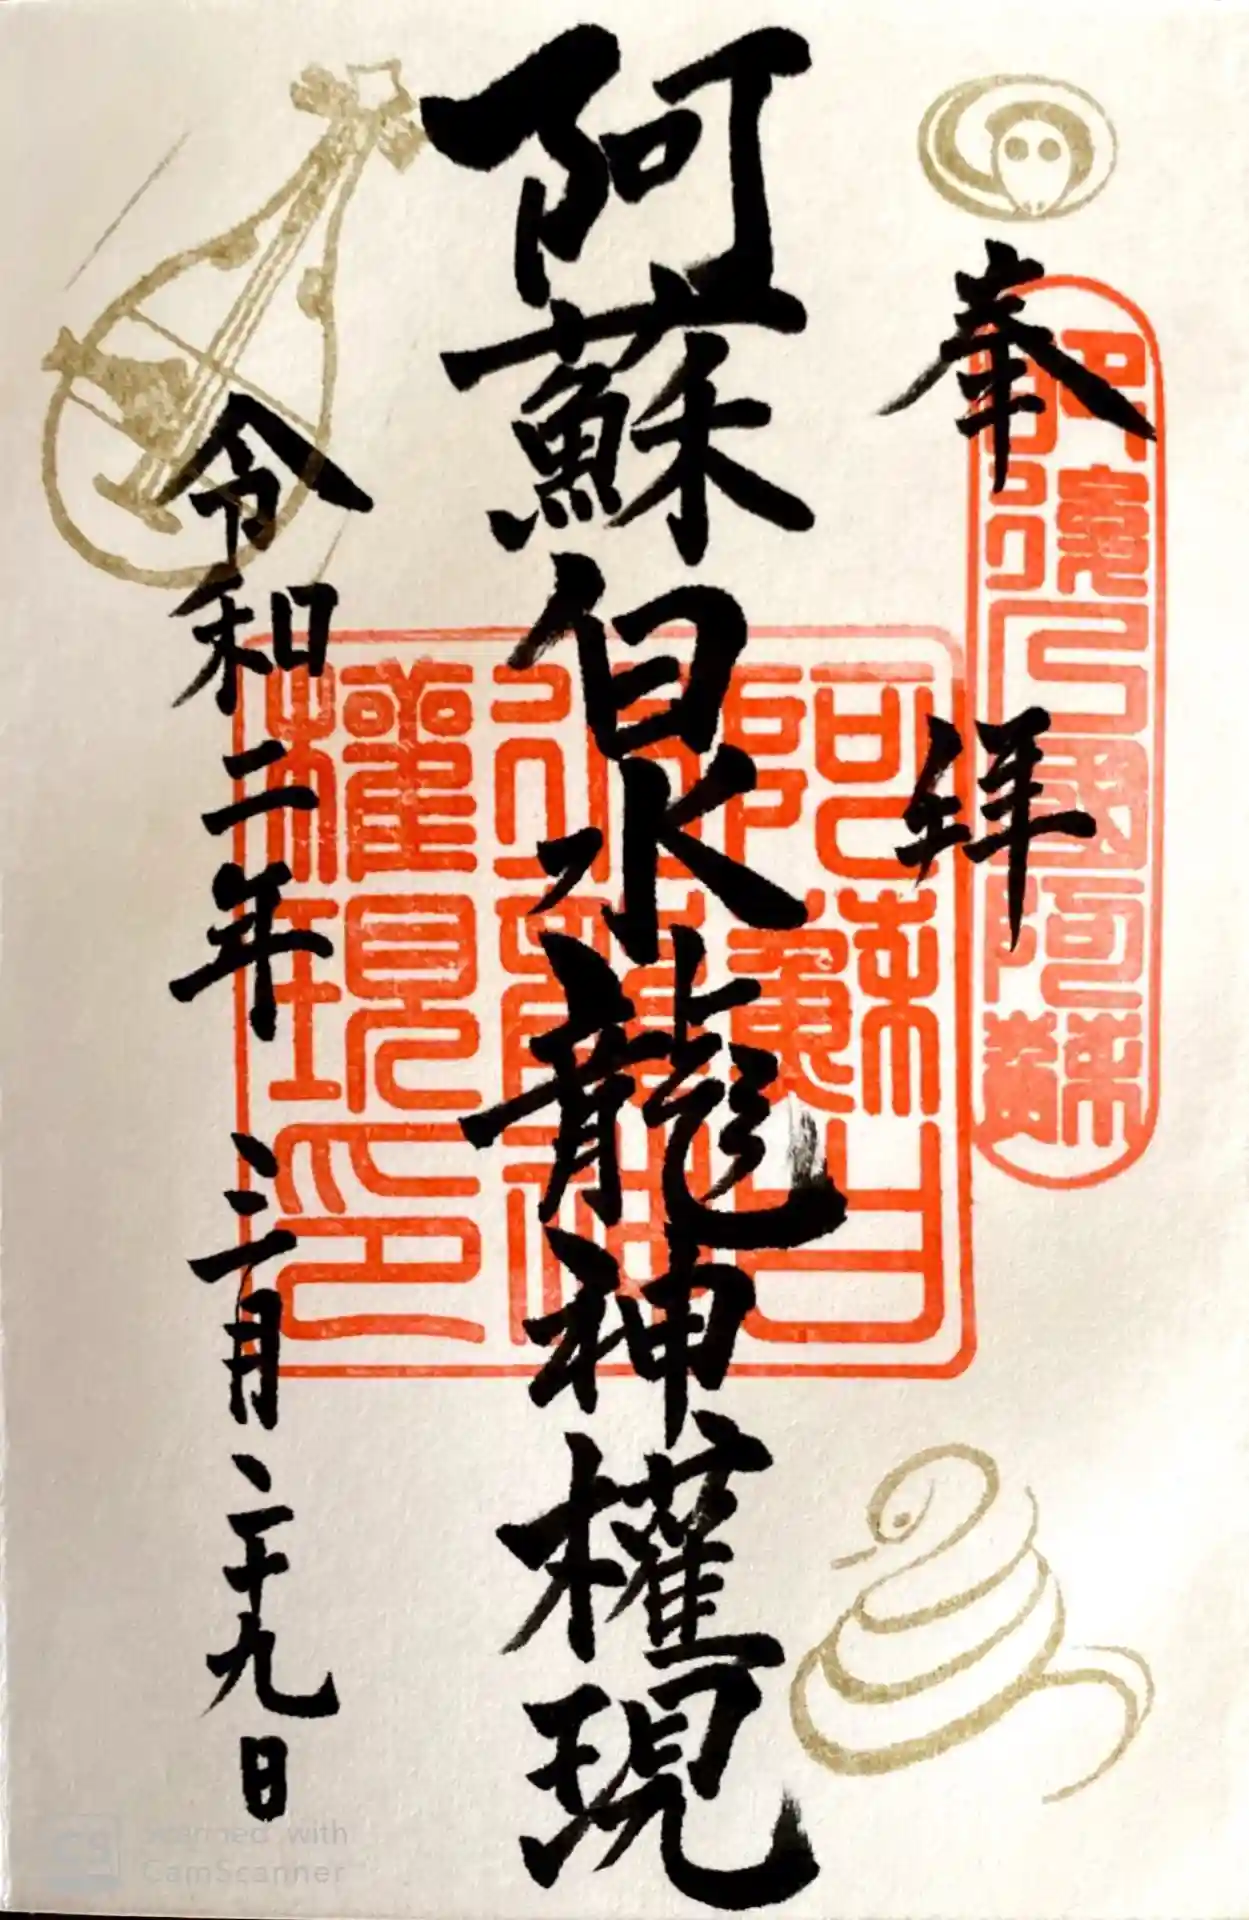 奉拝
阿蘇白水龍神權現
令和二年三月二十九日
阿蘇白
水龍神
權現印
Scanned with
CamScanner